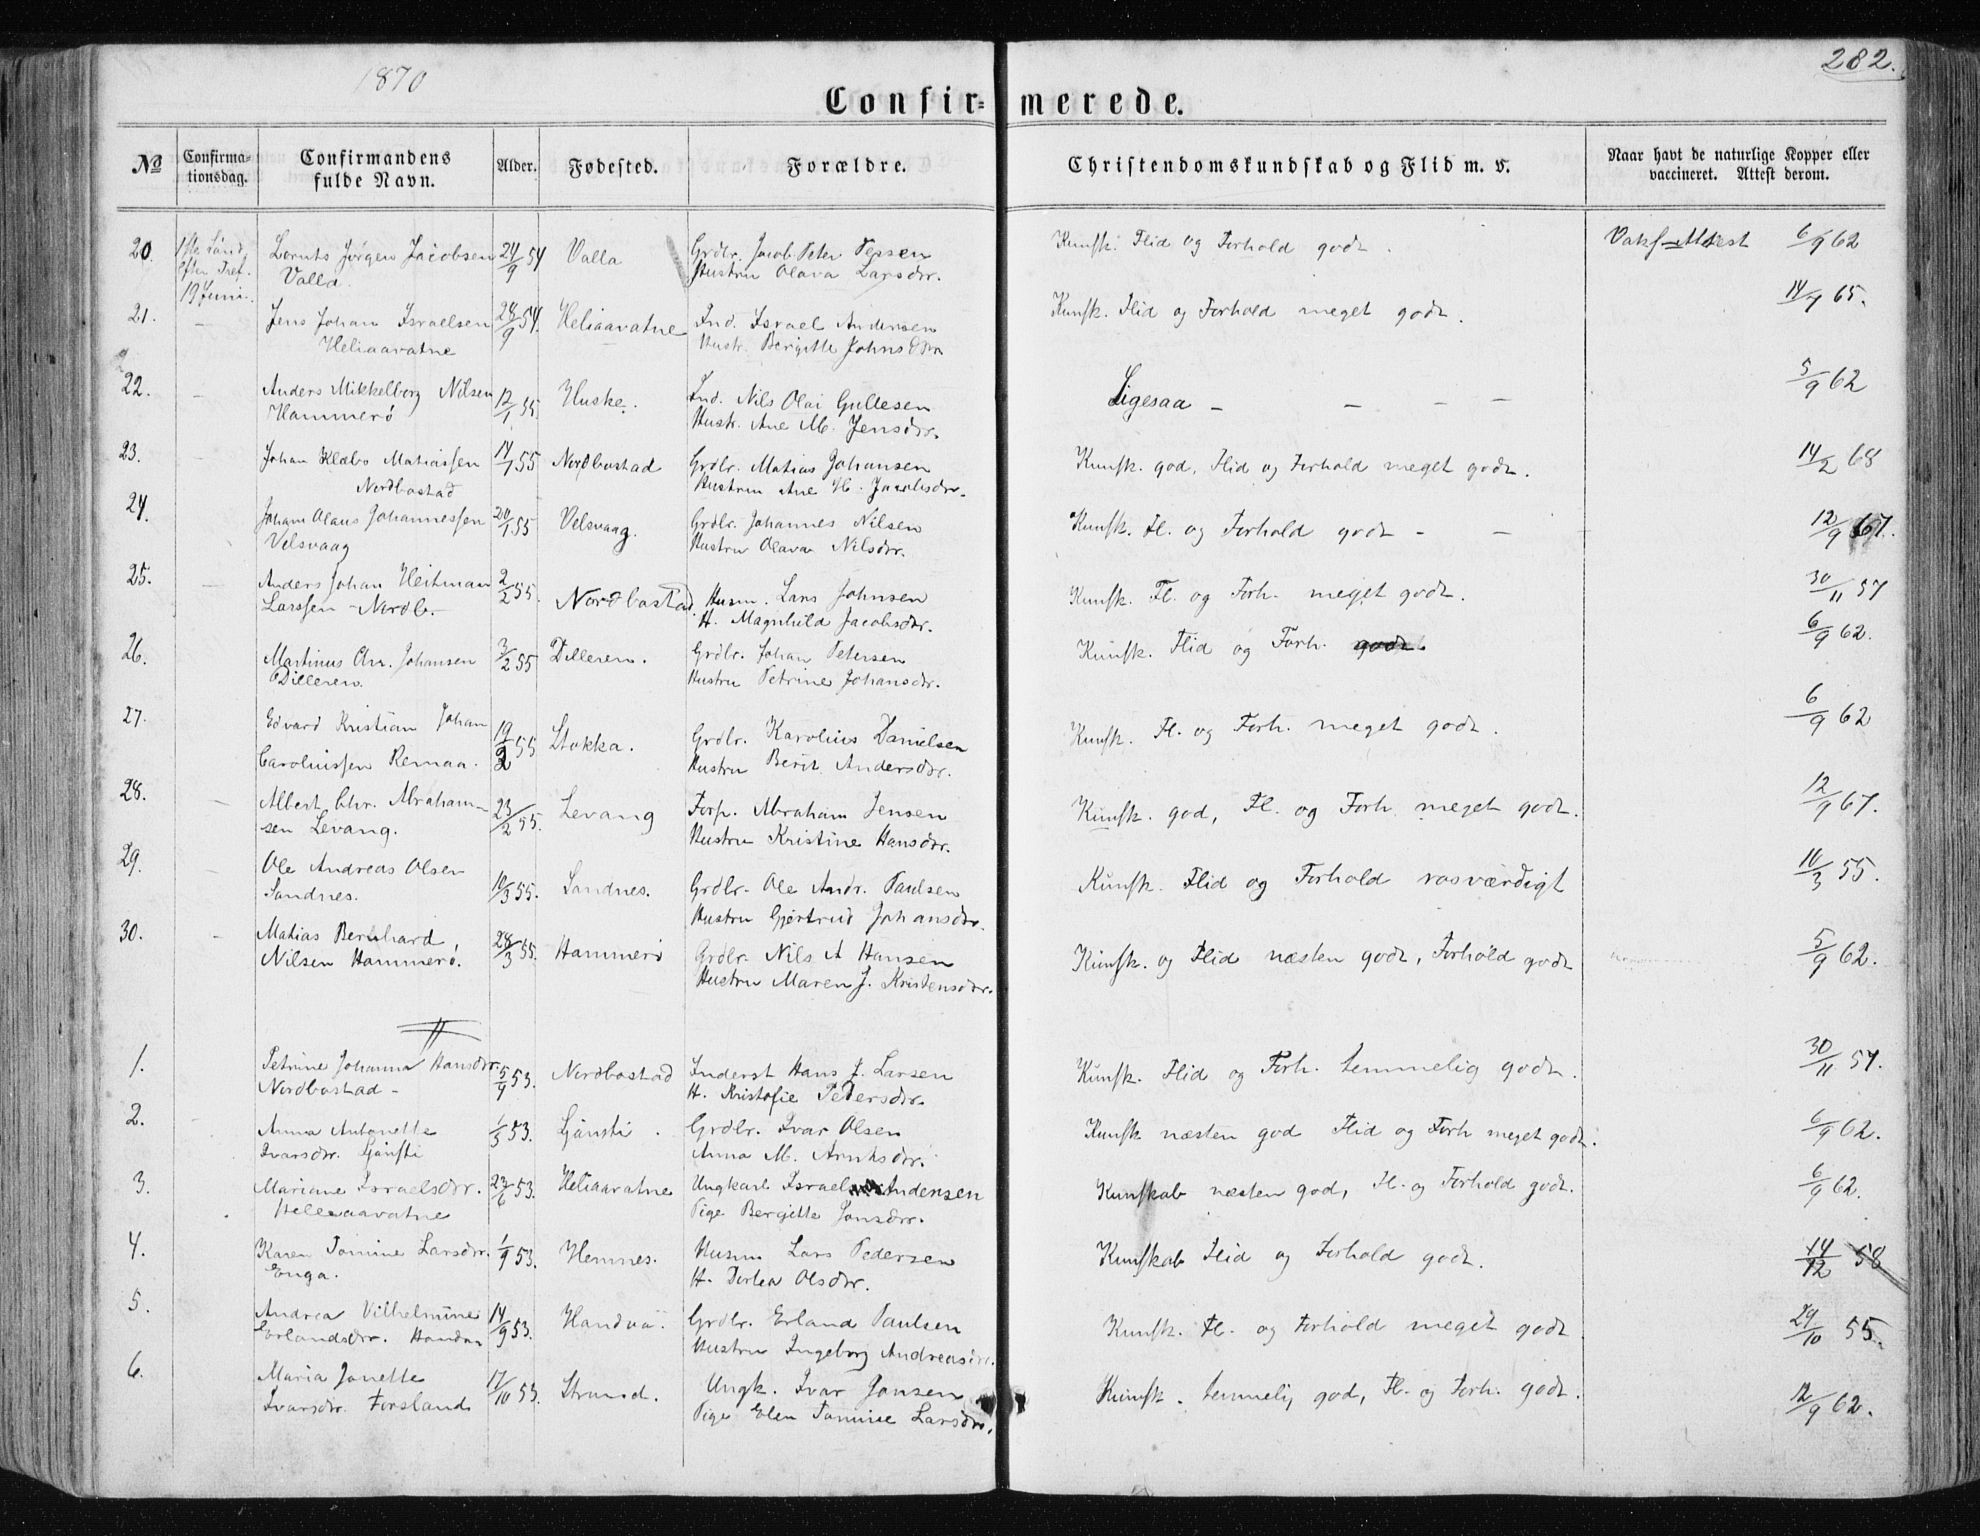 1870
282.
Confir= merede.
No
Confirma-
tionsdag.
Confirmandens
fulde Navn.
Alder.
Fødested.
Forældre.
Christendomskundskab og Flid m. v.
Naar havt de naturlige Kopper eller
vaccineret. Attest derom.
20. Lornts Jørgen Jacobsen 24/9 54 Valla Grdbr. Jacob Peter Kunsk. Flid og Forhold godt. Attest 6/9 62
19 Juni. Valla. Hustru Olava Larsdr.
21. – Jens Johan Israelsen 28/9 54. Heliaavatne Ind. Israel Andersen Kunsk. Flid og Forhold meget godt. 65.
Heliaavatne Hustr. Bergitte
22. – Anders Mikkelborg Nilsen 12/1 55. Huske. Ind. Nils Olai Gullesen Ligesaa – – – – 5/9 62
Hammerø Hustr. Ane M. Jensdr.
23. – Johan Klæbo Matiassen 14/1 55 Nordbostad Grdbr. Matias Johansen Kunsk. god, Flid og Forhold meget godt. 14/2 68
Nordbostad Hustru Ane H. Jacobsdr.
24. Johan Olaus Johannessen 20/1 55 Velsvaag. Grdbr. Johannes Nilsen Kunsk. Fl. og Forhold godt – – 12/9 67.
Velsvaag Hustru Olava Nilsdr.
25. – Anders Johan Heitman 2/2 55. Nordbostad. Husm. Lars Johnsen Kunsk. Fl. og Forh. meget godt. 30/11 57
Larssen – Nordb. H. Magnhild Jacobsdr.
26. Martinus Chr. Johansen 3/2 55 Dilleren. Grdbr. Johan Petersen Kunsk. Flid og Forh. godt. 6/9 62.
Dilleren. Hustru Petrine Johansdr.
27. Edvard Kristian Johan 19/2 55 Stokka. Grdbr. Karolius Danielsen Kunsk. Fl. og Forh. meget godt. 6/9 62
Caroliussen Remaa. Hustru Berit Andersdr.
28. – Albert Chr. Abraham- 23/2 55. Levang Forp. Abraham Jensen Kunsk. god, Fl. og Forh. meget godt. 12/9 67.
sen Levang. Hustru Kristine Hansdr.
29. Ole Andreas Olsen 10/3 55. Sandnes. Grdbr. Ole Andr. Paulsen Kunsk. Flid og Forhold rosværdigt 55.
Sandnes. Hustru Gjertrud Johansdr.
30. – Matias Bernhard 28/3 55. Hammerø Grdbr. Nils A Hansen Kunsk. og Flid næsten godt, Forhold godt 5/9 62.
Nilsen Hammerø. Hustru Maren J. Kristensdr.
1. Petrine Johanna Hansdr. 53. Nordbostad Inderst Hans J. Larsen Kunsk. Flid og Forh. temmelig godt. 30/11 57.
Nordbostad – H. Kristofie Pedersdr.
2. Anna Antonette 53. Grdbr. Ivar Olsen Kunsk næsten god Flid og Forh meget godt. 6/9 62.
Ivarsdr. Anna M.
3. Mariane Israelsdr. 53. Heliaavatne Ungkarl Israel Andersen Kunskab næsten god, Fl. og Forhold godt. 6/9 62.
Heliaavatne Pige Bergitte Jonsdr.
4. Karen Tomine Larsdr. 1/9 53. Hemnes. Husm Lars Pedersen Kunskab Flid og Forhold godt. 14/12 58
Enga. H. Dortea Olsdr.
5. Andrea Vilhelmine 14/9 53. Grdbr. Erland Paulsen Kunsk. Fl. og Forhold meget godt 29/10 55.
Erlandsdr. Hustru Ingeborg Andreasdr.
6. Maria Jonette 17/10 53. Strand. Ungk. Ivar Jonsen Kunsk. temmelig god, Fl. og Forh. godt. 12/9 62.
Ivarsdr. Forsland Pige Elen Tomine Larsdr.